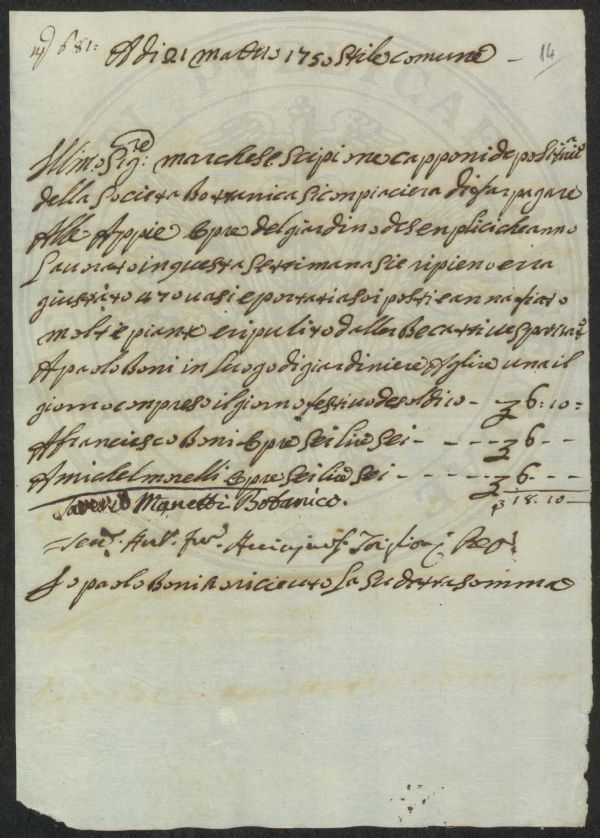 681: Adi 21 Marzo 1750 Stile comune 14
Illmo Sigre: Marchese Scipione Capponi depositario
della Società Bottanica Si conpiacera di far pagare
Alle Appie Opre del giardino de Senplici che anno
Lavorato in questa Settimana Si e ripieno e
giustato 470 vasi e portati a Soi posti e annafiato
molte piante e ripulito dalle Becattive
A paolo Boni in Luogo di giardiniere A lire una il
giorno conpreso il giorno festivo de Soldi 10 - 6: 10 =
A francesco Boni Opre Sei Lire Sei - - - - 6 - -
A Michel morelli Opre Sei Lire Sei - - - - - 6 - - -
Saverio Manetti Botanico. 18. 10 -
Io paolo Boni ho riceuto La Sudetta Somma